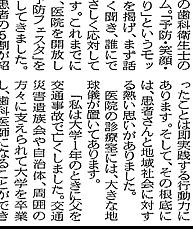 の歯科衛生士の
ム。「予防・笑顔・
り」というモッ
を掲げ、まず話
く聞き、誰にで
さしく応対して
す。これまでに
「医院を開放し
予防フェスタを
してきました。
患者の5割が紹
ったことは即実践する行動力に
あります。そして、その根底に
は、患者さんと地域社会に対す
る熱い思いがありました。
医院の診療室には、大きな地
球儀が置いてあります。
「私は大学1年のときに父を
交通事故で亡くしました。交通
災害遺族会や自治体、周囲の
方々に支えられて大学を卒業
し、歯科医師になることができ